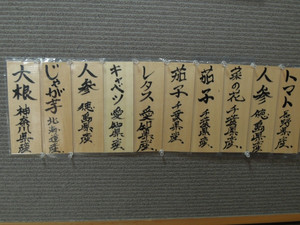 トマト 長崎県産
人参 徳島県産
菜の花 千葉県産
茄子 千葉県産
茄子 千葉県産
レタス 愛知県産
キャベツ 愛知県産
人参 徳島県産
じゃが芋 北海道産
大根 神奈川県産